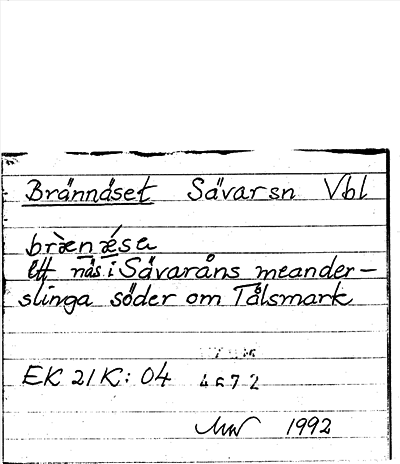 Brännäset Sävarsn Vbl
bræ̀nǽsa
ett näs i Sävaråns meander-
slinga söder om Tålsmark
EK 21K: 04 4672
1992